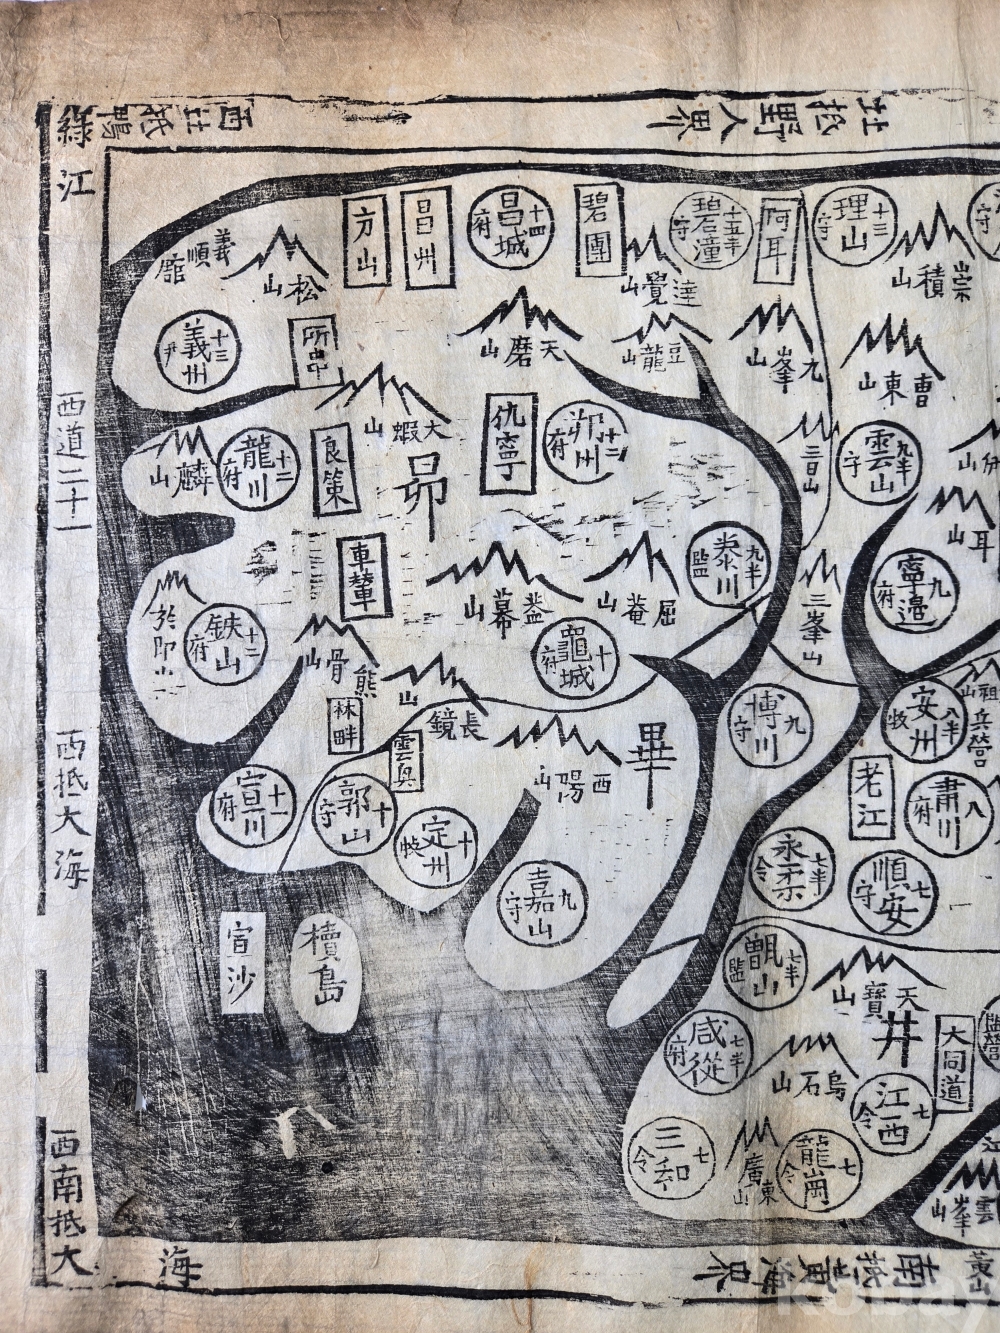 西北抵鴨
綠江
北抵野人界
西道二十一
西抵大海
西南抵大
海
南抵黃海界
黃山
義順館
松山
方山
昌州
昌城
十四
府
碧團
碧潼
十五半
守
阿耳
理山
十三
守
崇積山
達覺山
義州
十三
尹
所串
天磨山
豆龍山
九峯山
曹東山
大蝦山
麟山
龍川
十二
府
良策
昴
仇寧
朔州
十二
府
雲山
九半
守
耳山
車輦
蓋幕山
屈菴山
泰川
九半
監
三峯山
寧邊
九
府
鉄山
十二
府
熊骨山
龜城
十
府
林畔
長鏡山
雲興
西陽山
畢
博川
九
守
安州
八半
牧
兵營
祖山
宣川
十一
府
郭山
十
守
定州
十
牧
老江
肅川
八
府
嘉山
九
守
永柔
七半
令
順安
七
守
宣沙
檟島
甑山
七半
監
天寶山
井
大同道
監營
咸從
七半
府
烏石山
江西
七
令
三和
七
令
東廣山
龍崗
七
令
雲峯山
kobay